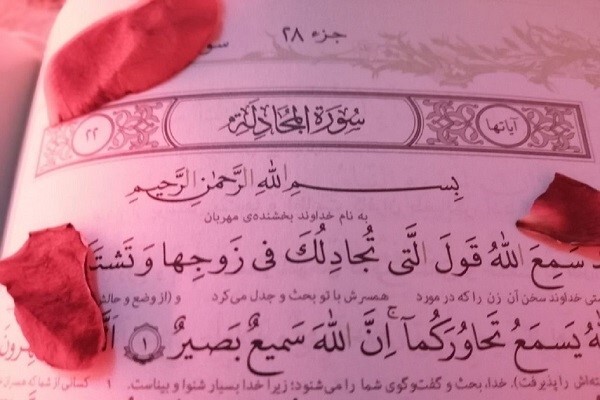 جزء ۲۸
سو
آیاتها سُورَةُ المُجَادِلَة ۲۲
بِسْمِ اللهِ الرَّحْمٰنِ الرَّحِيمِ
به نام خداوند بخشنده‌ی مهربان
سَمِعَ اللهُ قَوْلَ الَّتِي تُجَادِلُكَ فِي زَوْجِهَا وَ تَشْتَ
خداوند سخن آن زن را که در مورد همسرش با تو بحث و جدل می‌کرد و (از وضع و حال
يَسْمَعُ تَحَاوُرَكُمَآ ۚ إِنَّ اللهَ سَمِيعٌ بَصِيرٌ ۱
را پذیرفت). خدا، بحث و گفت‌وگوی شما را می‌شنود؛ زیرا خدا بسیار شنوا و بیناست. ۱ کسانی از شما که همسران